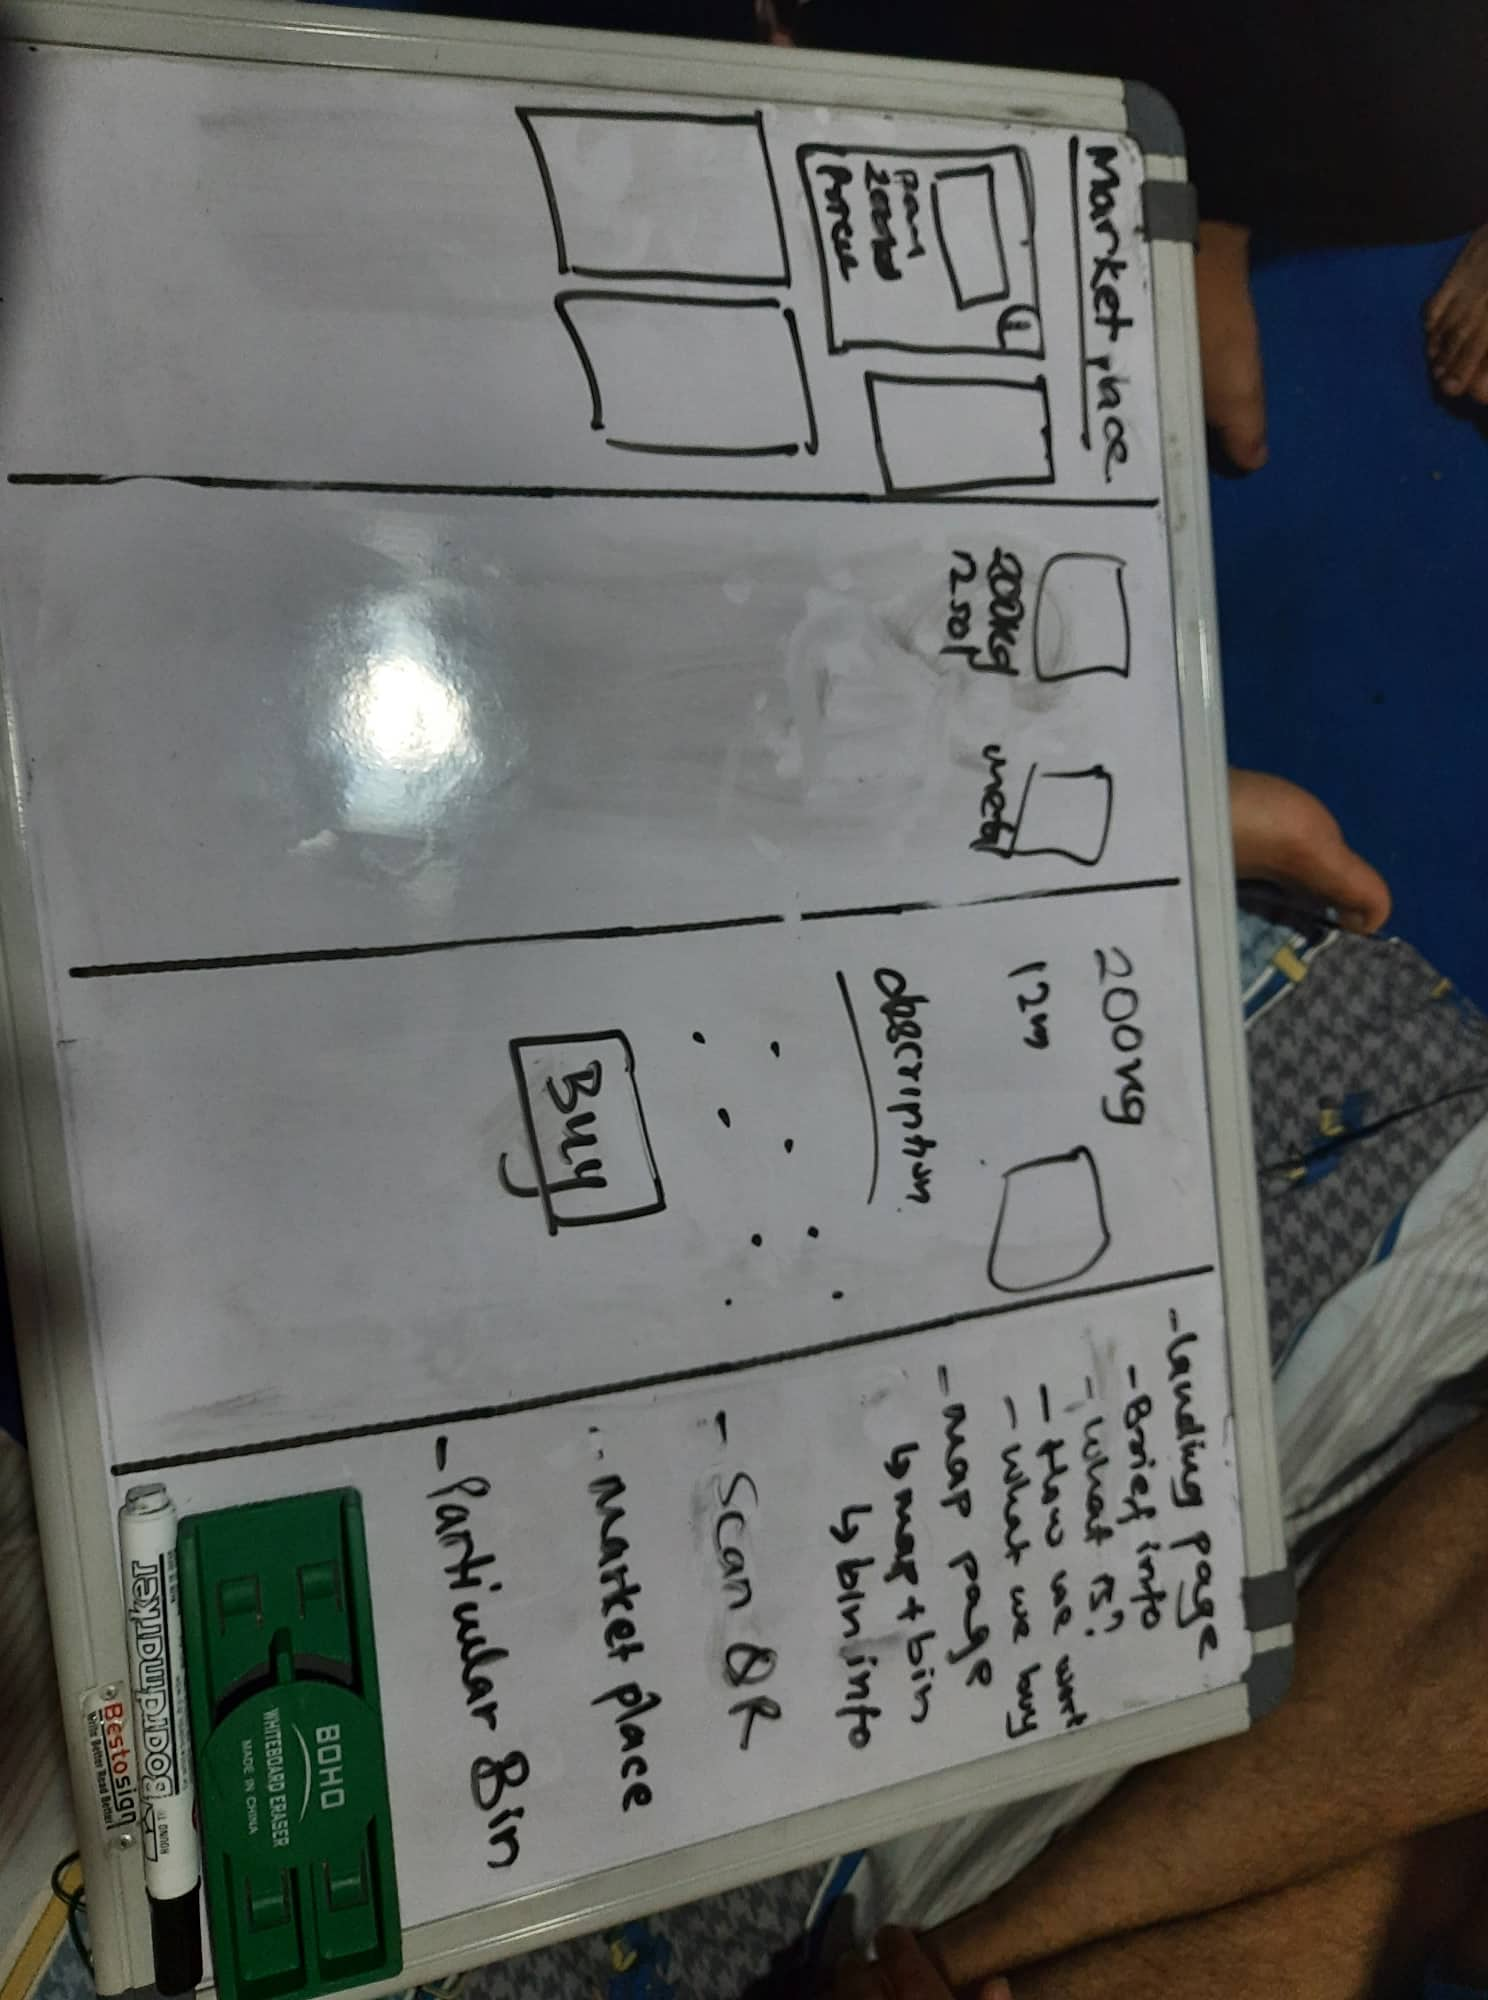 Marketplace
1
200kg
metal
200kg
description
Buy
-landing page
-Brief info
-what is?
-How we work
-what we buy
-map page
↳map+bin
↳bin info
-Scan QR
-market place
-Particular Bin
BOHO
WHITEBOARD ERASER
MADE IN CHINA
Bestosign
Write Better Read Better!